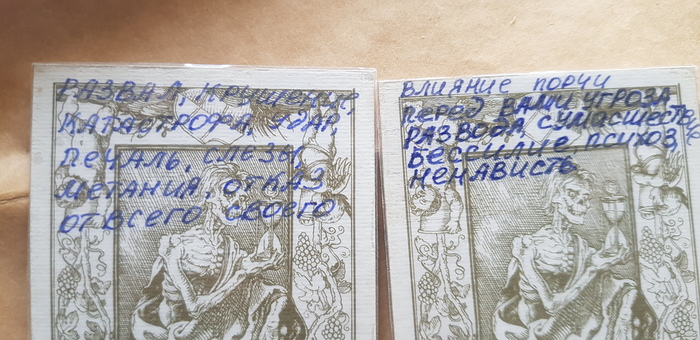 РАЗВАЛ, КРУШЕНИЕ,
КАТАСТРОФА, УДАР,
ПЕЧАЛЬ, СЛЕЗЫ,
МЕТАНИЯ, ОТКАЗ
ОТ ВСЕГО СВОЕГО
ВЛИЯНИЕ ПОРЧИ
ПЕРЕД ВАМИ УГРОЗА
РАЗВОДА, СУМАСШЕСТВ
БЕССИЛИЕ, ПСИХОЗ,
НЕНАВИСТЬ